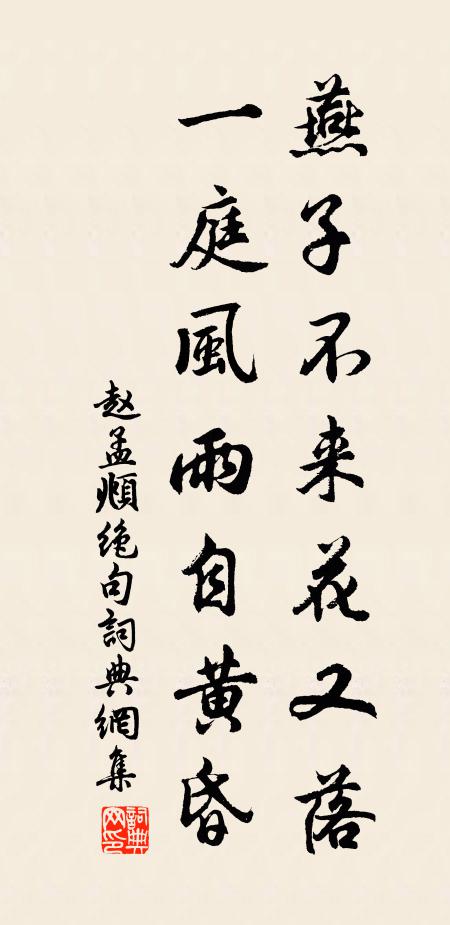 燕子不来花又落
一庭風雨自黄昏
赵孟頫绝句詞典網集
詞典
网印